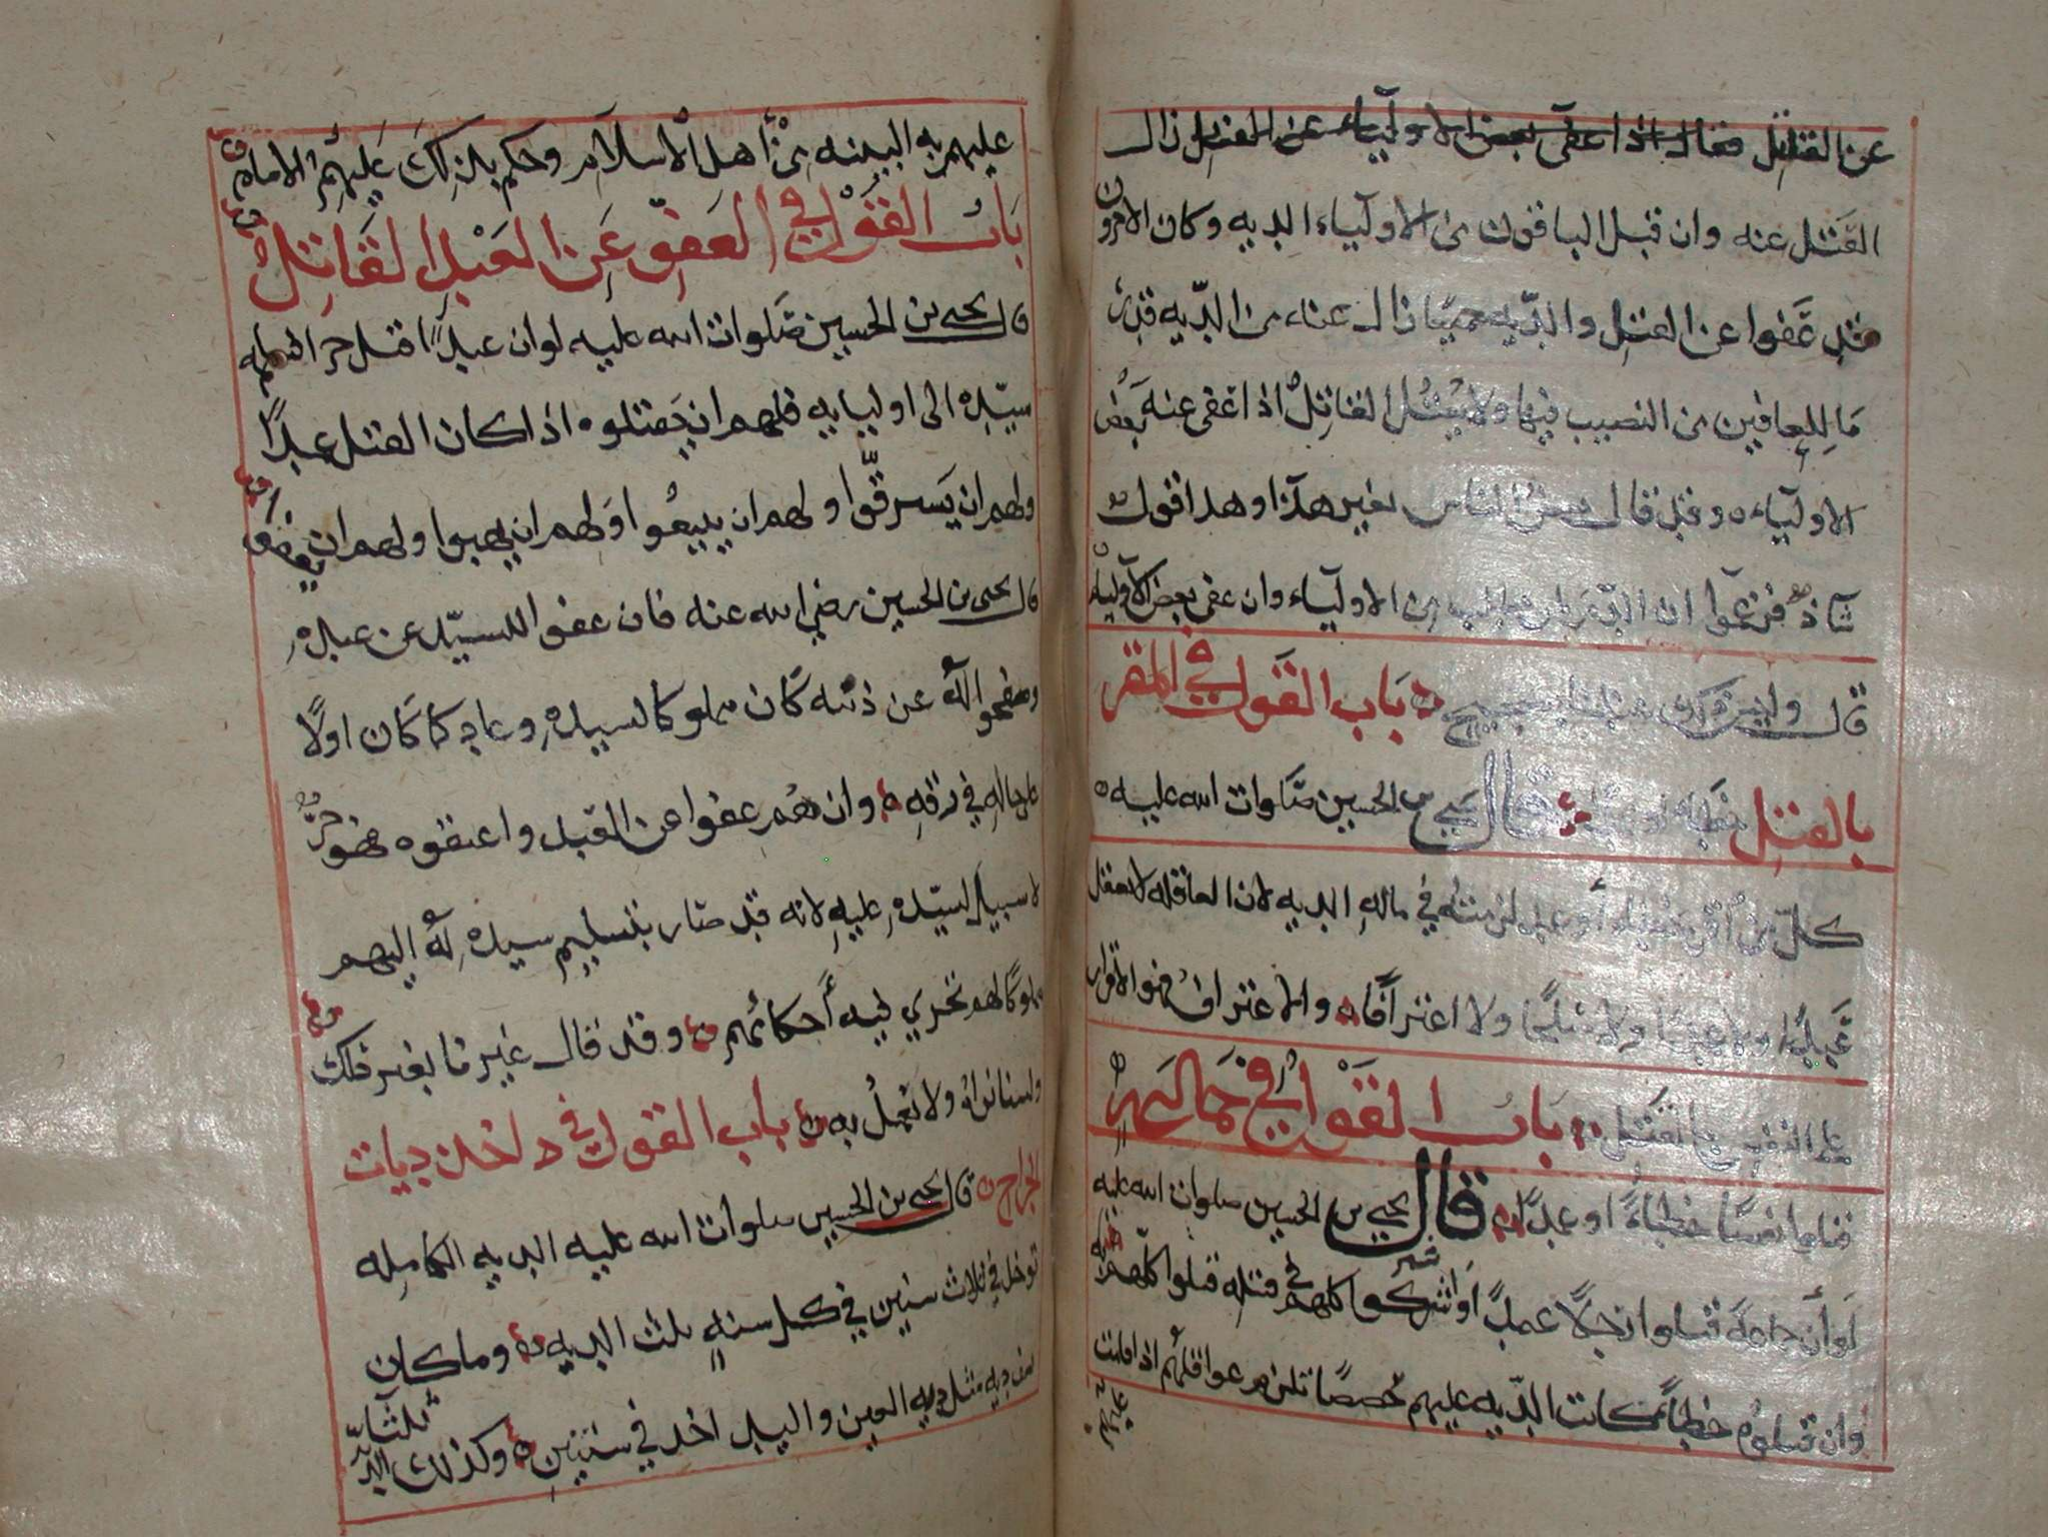 عن القتل فقال اذا عفى بعض الاولياء عن القتل زال
القتل عنه وان قبل الباقون من الاولياء الديه وكان الاخرون
قد عفوا عن القتل والديه جميعا زال عناء من الديه قدر
ما للعافين من النصيب فيها ولا يقتل القاتل اذا عفى عنه بعض
الاولياء وقد قال بعض الناس بغير هذا وهذا قول
شاذ فزعموا ان من الاولياء وان عفى بعض الاولياء
قال وليس ذلك عندنا بصحيح باب القول في المقر
بالقتل خطاء او قال يحيى بن الحسين صلوات الله عليه
كل من اقر بقتل او عمد لزمته في ماله الديه لان العاقله لا تعقل
عبدا ولا عمدا ولا صلحا ولا اعترافا والاعتراف فهو الاقرار
على النفس بالقتل باب القول في جماعه
قتلوا نفسا خطاءً او عمدا قال يحيى بن الحسين صلوات الله عليه
لو أن جماعة قتلوا رجلا عمدا واشتركوا كلهم في قتله قتلوا كلهم به
وان قتلوه خطأ كانت الديه عليهم حصصا تلزم عواقلهم اذا قامت
عليهم
عليهم به البينه من أهل الاسلام وحكم بذلك عليهم الامام
باب القول في العفو عن العبد القاتل
قال يحيى بن الحسين صلوات الله عليه لو ان عبدا قتل حرا فسلمه
سيده الى اوليايه فلهم ان يقتلوه اذا كان القتل عمدا
ولهم ان يسترقوا ولهم ان يبيعوا ولهم ان يهبوا ولهم ان يعفوا
قال يحيى بن الحسين رضي الله عنه فان عفوا للسيد عن عبده
وصفحوا له عن ذنبه كان مملوكا لسيده وعاد كما كان اولا
على حاله في رقه وان هم عفوا عن القتل واعتقوه فهو حر
لا سبيل لسيده عليه لانه قد صار بتسليم سيده له إليهم
مملوكا لهم تجري فيه أحكامهم وقد قال غيرنا بغير ذلك
ولسنا نراه ولا نعمل به باب القول في د اخذ ديات
الجراح قال يحيى بن الحسين صلوات الله عليه الديه الكامله
توخذ في ثلاث سنين في كل سنه ثلث الديه وما كان
نصف ديه مثل ديه العين واليد اخذ في سنتين وكذلك ثلثا الديه